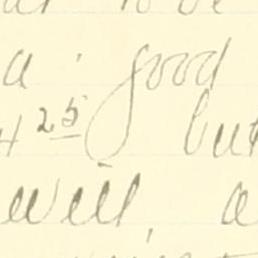 to be
a good
4 25 but
will, a